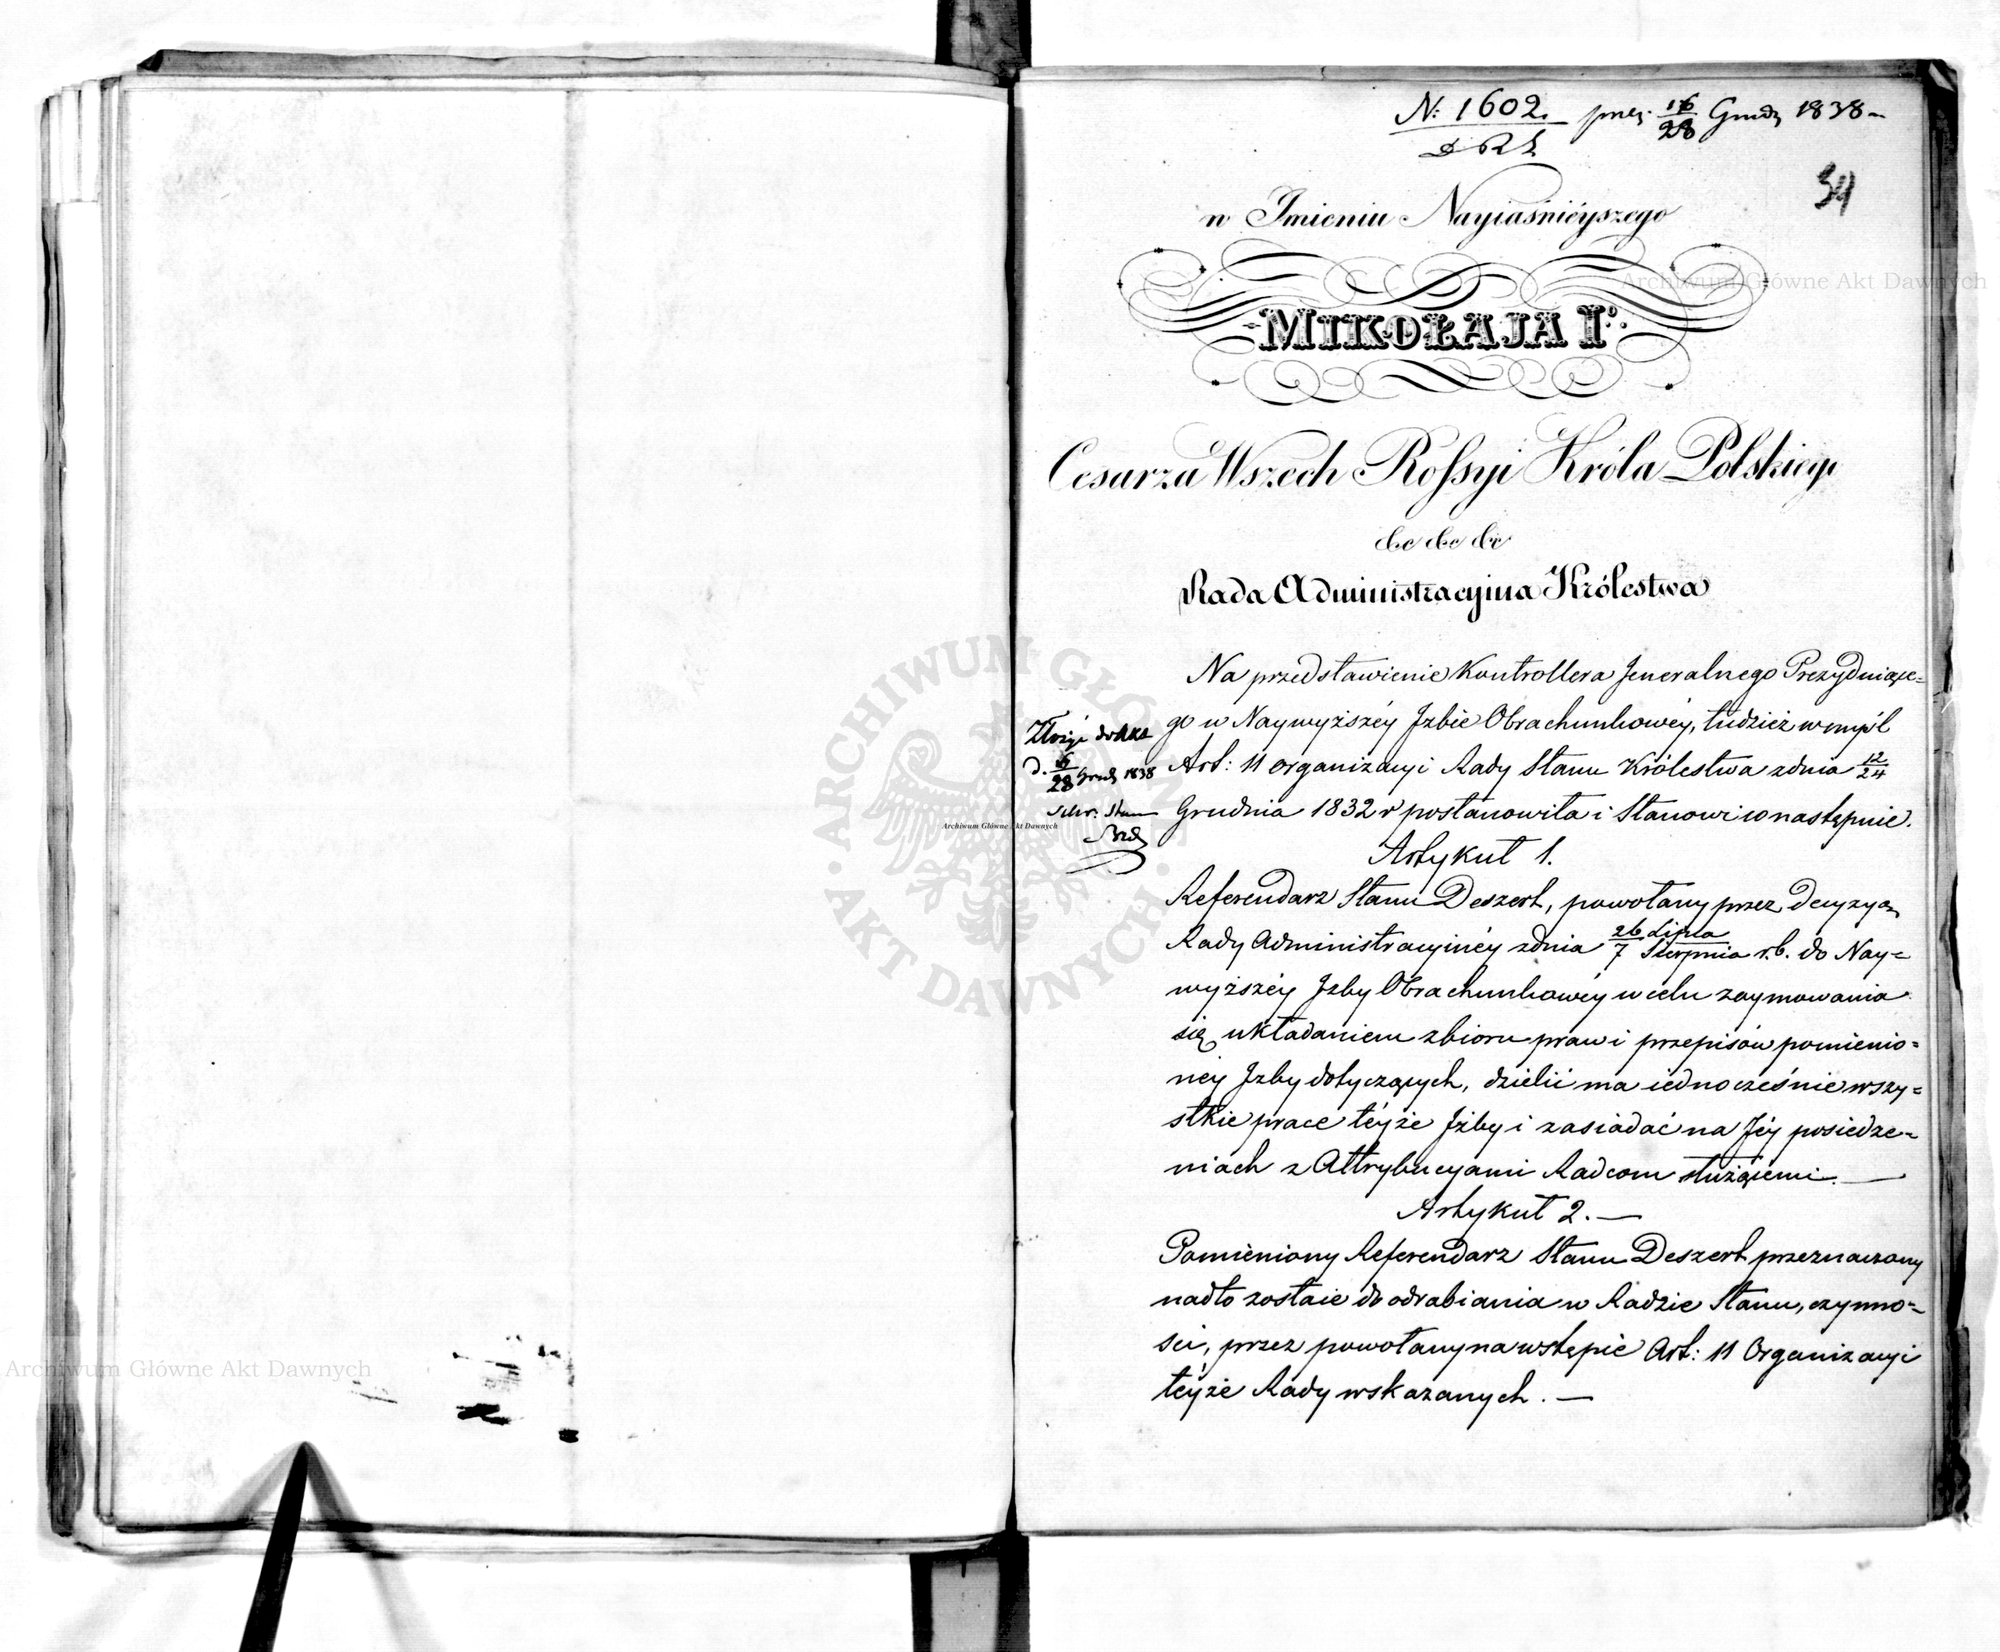 N: 1602. prez. 16/28 Grudz 1838
34
w Imieniu Nayiaśnieyszego
MIKOŁAJA Iº
Cesarza Wszech Rossyi Króla Polskiego
&c &c &c
Rada Administracyina Królestwa
Na przedstawienie Kontrollera Jeneralnego Prezyduiące=
go w Naywyższéy Izbie Obrachunkowéy, tudzież w myśl
Art: 11 organizacyi Rady Stanu Królestwa z dnia 12/24
Grudnia 1832 r postanowiła i Stanowi co następuie.
Artykuł 1.
Referendarz Stanu Deszert, powołany przez decyzyą
Rady Administracyinéy z dnia 26 Lipca/7 Sierpnia r.b. do Nay=
wyższéy Izby Obrachunkowéy w celu zaymowania
się układaniem zbioru praw i przepisów pomienio=
néy Izby dotyczących, dzielić ma iednocześnie wszy=
stkie prace téyże Izby i zasiadać na Jéy posiedze=
niach z Attrybucyami Radcom służącemi. —
Artykuł 2. —
Pomieniony Referendarz Stanu Deszert przeznaczony
nadto zostaie do odrabiania w Radzie Stanu, czynno=
ści, przez powołany na wstępie Art: 11 Organizacyi
téyże Rady wskazanych. —
Złożyć do Akt
d. 16/28 Grudz 1838
Sekr. Stanu
Archiwum Główne Akt Dawnych
Archiwum Główne Akt Dawnych
Archiwum Główne Akt Dawnych
ARCHIWUM GŁÓWNE AKT DAWNYCH